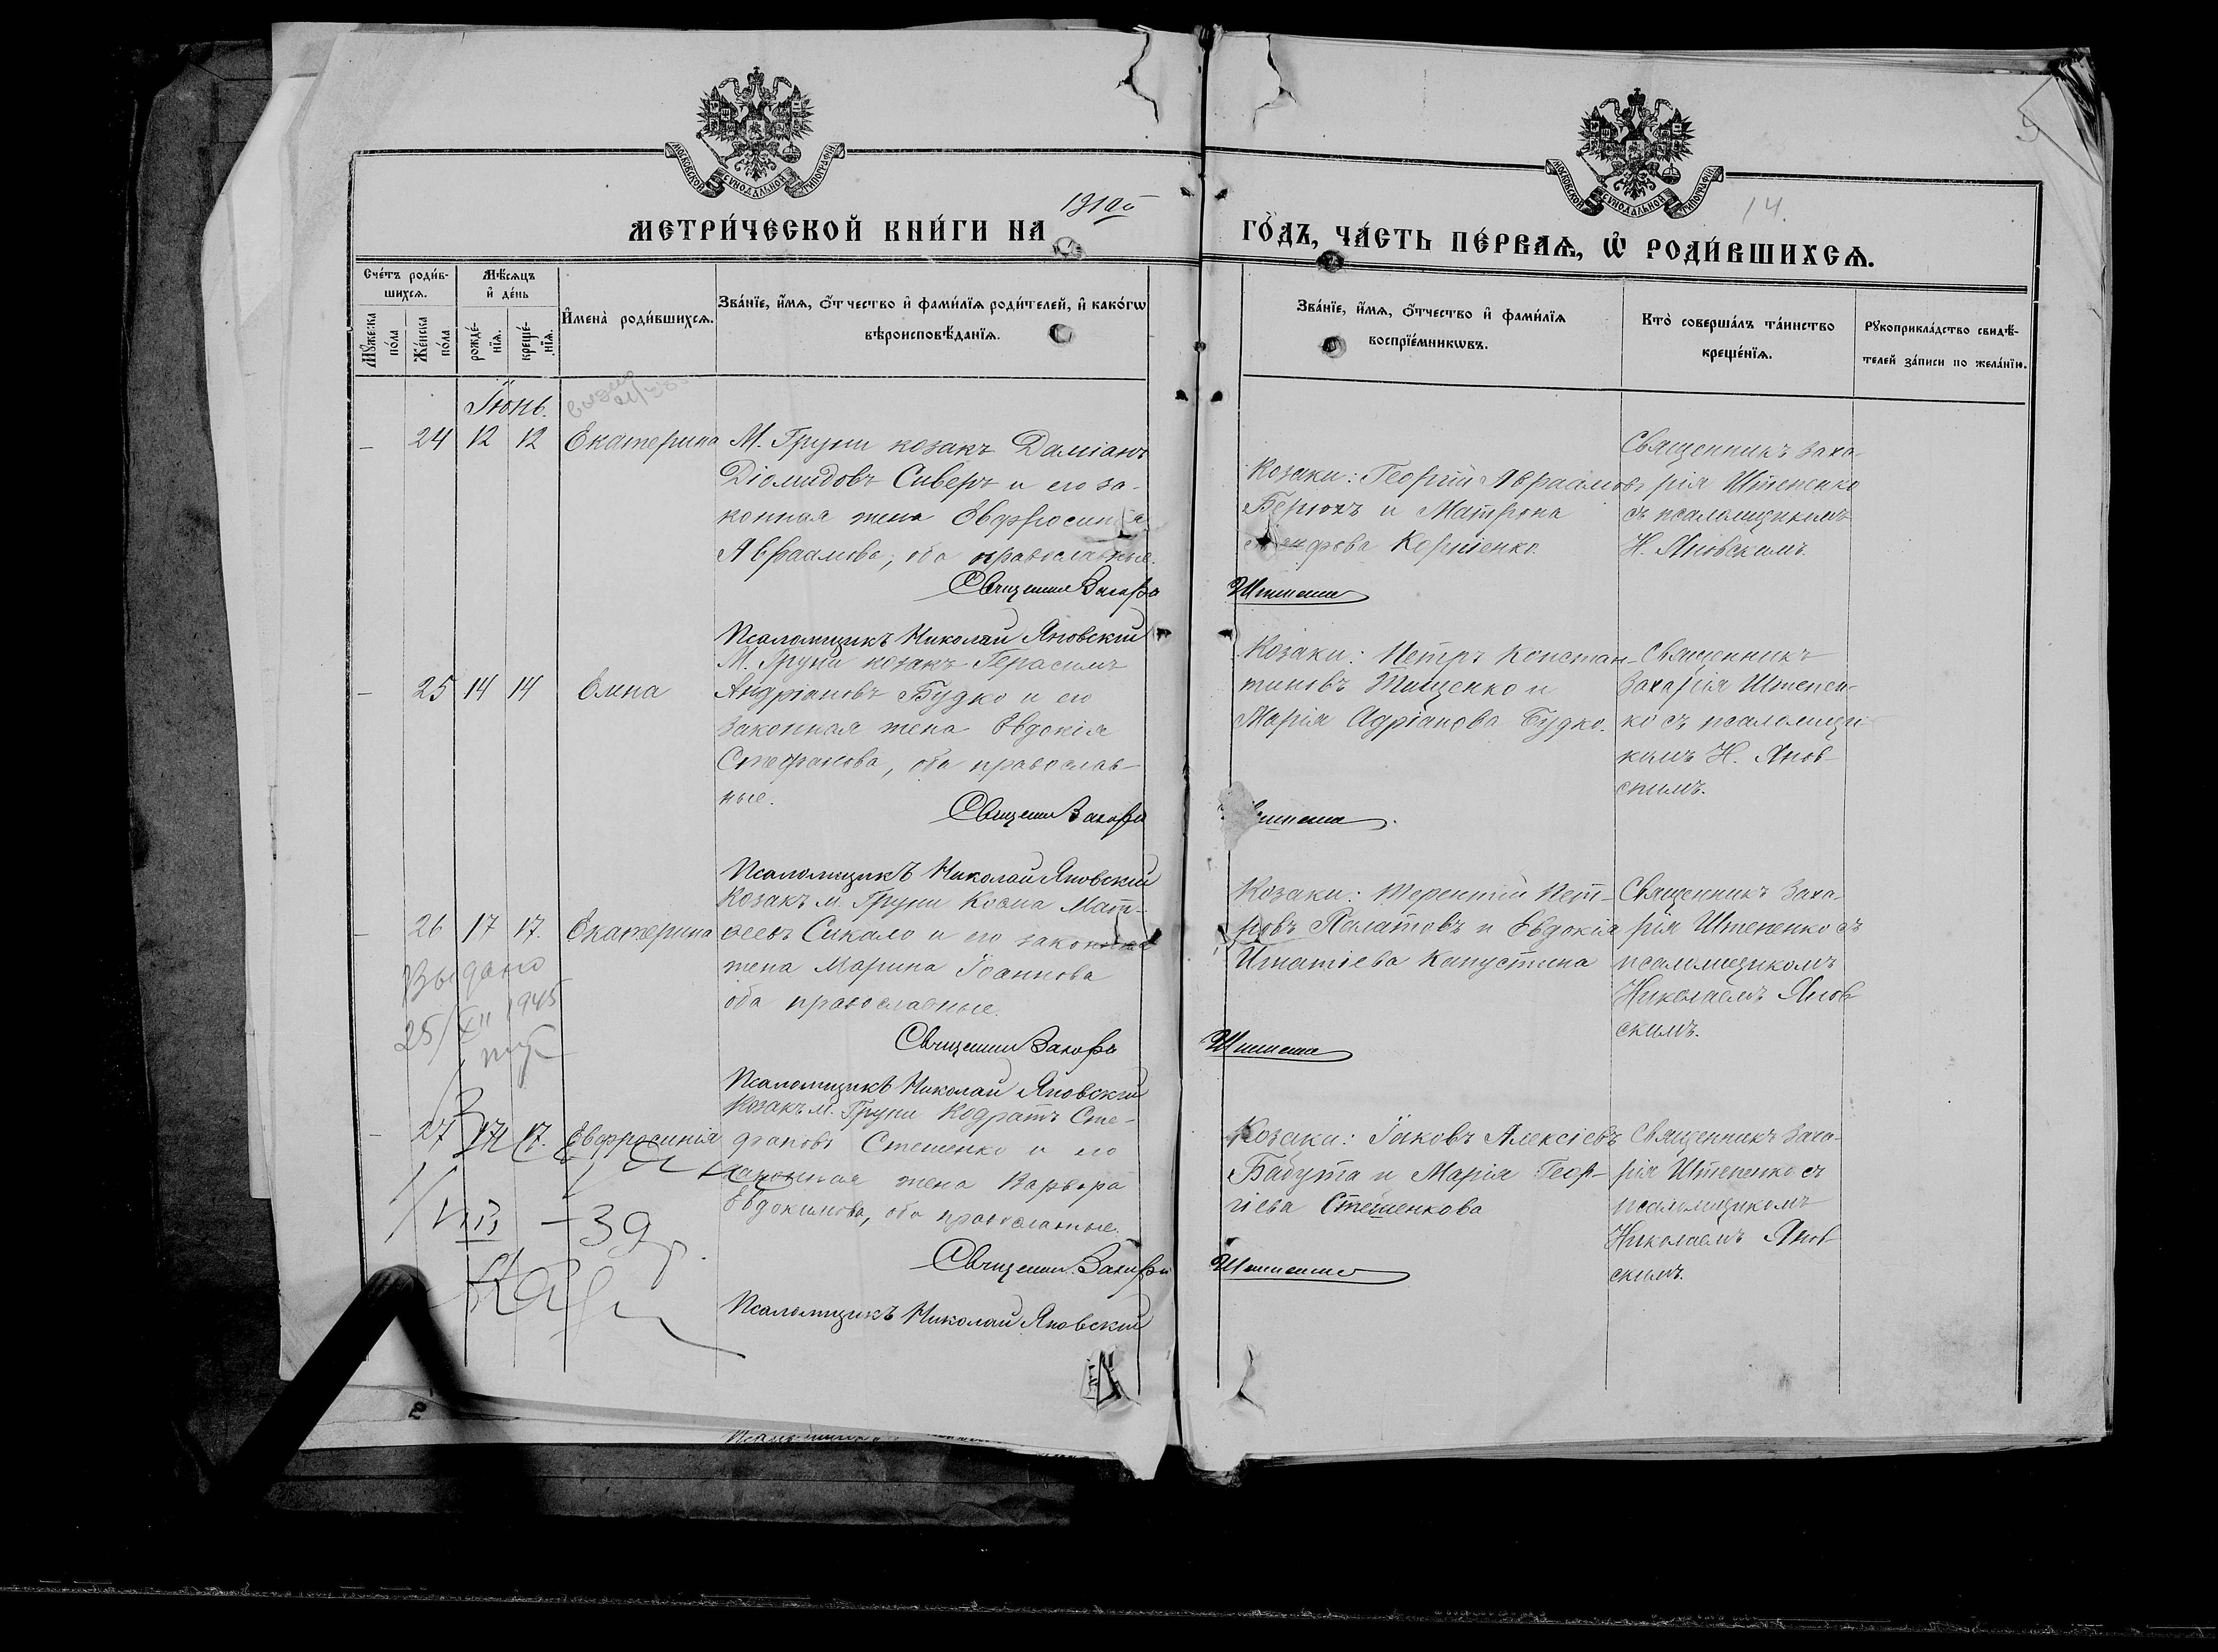 МОСКОВСКОЙ СѴНОДАЛЬНОЙ ТИПОГРАФІИ
МОСКОВСКОЙ СѴНОДАЛЬНОЙ ТИПОГРАФІИ
14.
МЕТРИ́ЧЕСКОЙ КНИ́ГИ НА
ГО́ДЪ, ЧА́СТЬ ПЕ́РВАѦ, Ѡ҆ РОДИ́ВШИХСѦ.
Сче́тъ роди́в-
шихсѧ.
Мѣ́сѧцъ
и҆ де́нь
Мꙋ́жеска по́ла
Же́нска по́ла
рожде́-нїѧ.
креще́-нїѧ.
И҆мена̀ роди́вшихсѧ.
Зва́нїе, и҆́мѧ, ѻ҆́тчество и҆ фами́лїѧ роди́телей, и҆ како́гѡ
вѣроисповѣ́данїѧ.
Зва́нїе, и҆́мѧ, ѻ҆́тчество и҆ фами́лїѧ
воспрїе́мникѡвъ.
Кто̀ соверша́лъ та́инство
креще́нїѧ.
Рꙋкоприкла́дство свидѣ́-
телей за́писи по жела́нїю.
Іюнь.
– 24 12 12 Екатерина
М. Груни козакъ Даміанъ
Діомидовъ Сиверъ и его за-
конная жена Евфросинія
Авраамова, оба православные.
Священникъ Захарія
Псаломщикъ Николай Яновскій
Козаки: Георгій Авраамовъ
и Матрона
Корніенко.
Штепенко
Священникъ Заха-
рія Штепенко
съ псаломщикомъ
Н. Яновскимъ.
– 25 14 14 Елена
М. Груни козакъ Герасимъ
Андріановъ Будко и его
законная жена Евдокія
Стефанова, оба православ-
ные.
Священникъ Захарія
Псаломщикъ Николай Яновскій
Козаки: Петръ Констан-
тиновъ Тищенко и
Марія Адріанова Будко.
Священникъ
Захарія Штепен-
ко съ псаломщи-
комъ Н. Янов-
скимъ.
– 26 17 17. Екатерина
Козакъ м. Груни Косма Мат-
ѳеевъ Сикало и его законная
жена Марина Іоаннова
оба православные.
Священникъ Захарія
Псаломщикъ Николай Яновскій
Козаки: Терентій Пет-
ровъ и Евдокія
Игнатіева Капустина
Штепенко
Священникъ Заха-
рія Штепенко съ
псаломщикомъ
Николаемъ Янов-
скимъ.
Выдано
25/XII 1945
– 27 17 17. Евфросинія
Козакъ м. Груни Кодратъ Сте-
фановъ Стешенко и его
законная жена Варвара
Евдокимова, оба православные.
Священникъ Захарія
Псаломщикъ Николай Яновскій
Козаки: Іаковъ Алексіевъ
Бабута и Марія Геор-
гіева Стешенкова
Штепенко
Священникъ Заха-
рія Штепенко съ
псаломщикомъ
Николаемъ Янов-
скимъ.
– 39 г.